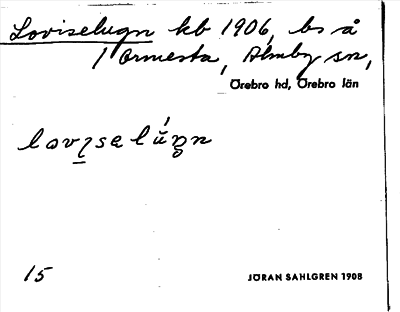 Loviselugn kb 1906, bs å
1 Ormesta, Almby sn,
Örebro hd, Örebro län
loviselúgn
15
JÖRAN SAHLGREN 1908